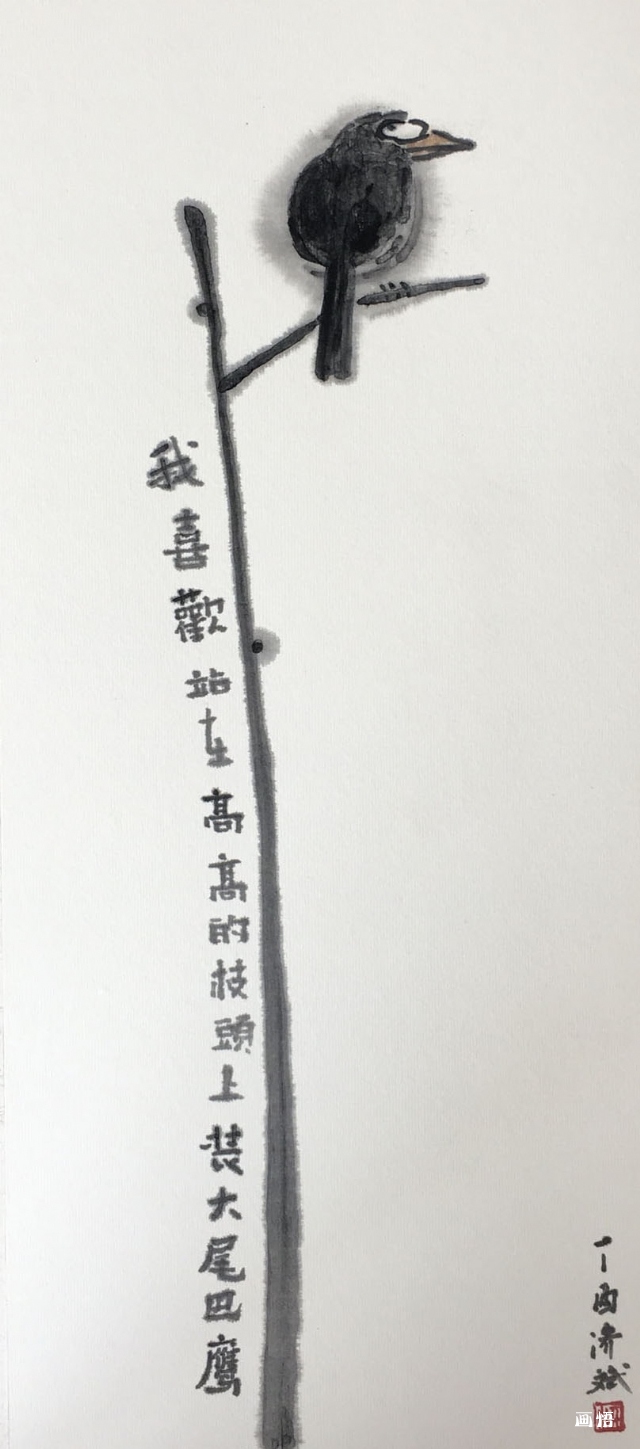 我喜歡站在高高的枝頭上装大尾巴鹰
丁酉济斌
画悟